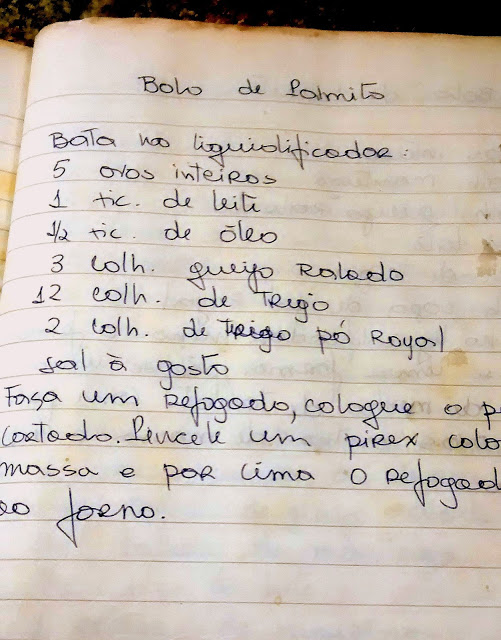 Bolo de Palmito
Bata no liquidificador:
5 ovos inteiros
1 xic. de leite
1/2 xic. de óleo
3 colh. queijo Ralado
12 colh. de Trigo
2 colh. de pó Royal
sal à gosto
Faça um Refogado, coloque o p
cortado. Pincele um pirex colo
massa e por cima o Refogad
ao forno.